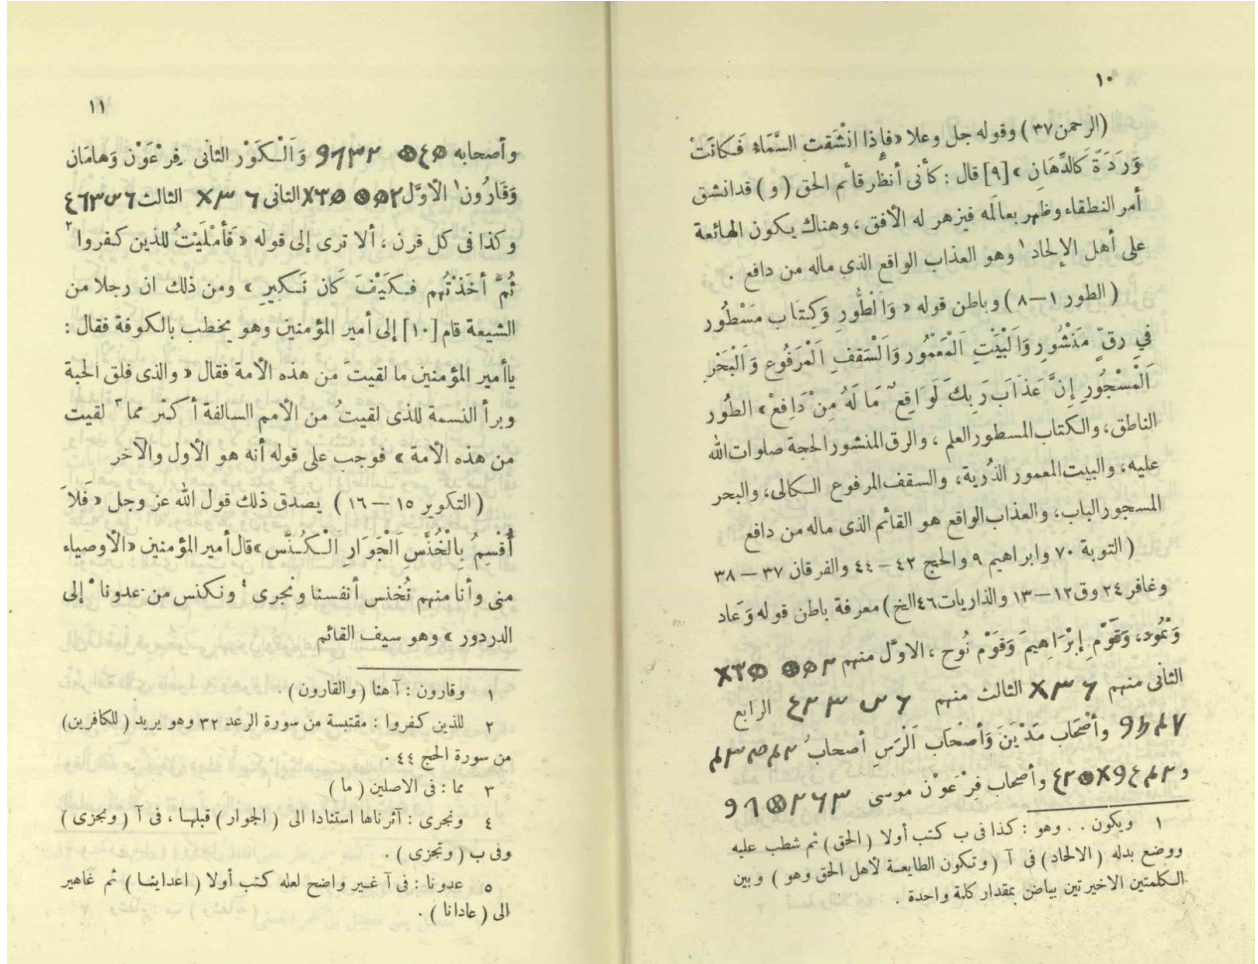 ١٠
(الرحمن ٣٧) وقوله جل وعلا «فإِذا انْشَقَتِ السَّمَاءُ فَكانَتْ
وَرْدَةً كَالدِّهَانِ» [٩] قال : كأنى أنظر قائم الحق (و) قد انشق
أمر النطقاء وظهر بعالمه فيزهر له الأفق ، وهناك يكون الهائعة
على أهل الإلحاد١ وهو العذاب الواقع الذي ماله من دافع .
(الطور ١ – ٨) وباطن قوله « وَالْطُّورِ وَكِتَاب مَسْطُور
فِي رِقٍّ مَنْشُورِ وَالْبَيْتِ الْمَعْمُور وَالسَّقفِ الْمَرْفُوعِ وَالْبَحْرِ
الْمَسْجُورِ إِنَّ عَذَابَ رَبِكَ لَوَاقِع مَا لَهُ مِنْ دَافِعْ » الطُور
الناطق ، والكتاب المسطور العلم ، والرق المنشور الحجة صلوات الله
عليه ، والبيت المعمور الذُرية ، والسقف المرفوع الكالى ، والبحر
المسجور الباب ، والعذاب الواقع هو القائم الذى ماله من دافع
(التوبة ٧٠ وابراهيم ٩ والحج ٤٢ – ٤٤ والفرقان ٣٧ – ٣٨
وغافر ٢٤ وق ١٢ – ١٣ والذاريات ٤٦ الخ) معرفة باطن قوله وَعَاد
وَثَمُود ، وَقَوْمِ إِبْرَاهِيمَ وَقَوْمِ نُوح ، الاوّل منهم
الثانى منهم الثالث منهم الرابع
وأصْحَاب مَدْيَنَ وَأصْحَاب الْرَسِ أصحابُ
وأصحاب فِرْعَوْن موسى
١ ويكون . . وهو : كذا فى ب كتب أولا (الحق) ثم شطب عليه
ووضع بدله (الالحاد) فى آ (وتكون الطايعة لأهل الحق وهو) وبين
الكلمتين الاخيرتين بياض بمقدار كلمة واحدة .
١١
وأصحابه وَالْكَوْر الثانى فِرْعَوْن وَهامَان
وَقَارُون١ الأوّل الثانى الثالث
وكذا فى كل قرن ، ألا ترى إلى قوله « فَأمْلَيْتُ للذين كفروا٢
ثُمَّ أخَذْتُهُم فَكَيْفَ كَان نَكِيرِ » ومن ذلك ان رجلا من
الشيعة قام [١٠] إلى أمير المؤمنين وهو يخطب بالكوفة فقال :
ياأمير المؤمنين ما لقيتَ من هذه الأمة فقال « والذى فلق الحبة
وبرأ النسمة للذى لقيتُ من الأمم السالفة أكثر مما٣ لقيت
من هذه الأمة » فوجب على قوله أنه هو الأول والآخر
(التكوير ١٥ – ١٦) يصدق ذلك قول الله عز وجل « فَلاَ
أُقْسِمُ بِالْخُنَّسِ الْجَوَارِ الْكُنَّس » قال أمير المؤمنين « الأوصياء
منى وأنا منهم نُخنس أنفسنا ونجرى٤ ونكنس من عدونا٥ إلى
الدردور » وهو سيف القائم
١ وقارون : آ هنا (والقارون) .
٢ للذين كفروا : مقتبسة من سورة الرعد ٣٢ وهو يريد (للكافرين)
من سورة الحج ٤٤ .
٣ مما : فى الاصلين (ما)
٤ ونجرى : آثرناها استنادا الى (الجوار) قبلها ، فى آ (ونجزى)
وفى ب (وتجزى) .
٥ عدونا : فى آ غير واضح لعله كتب أولا (اعداينا) ثم
الى (عادانا) .